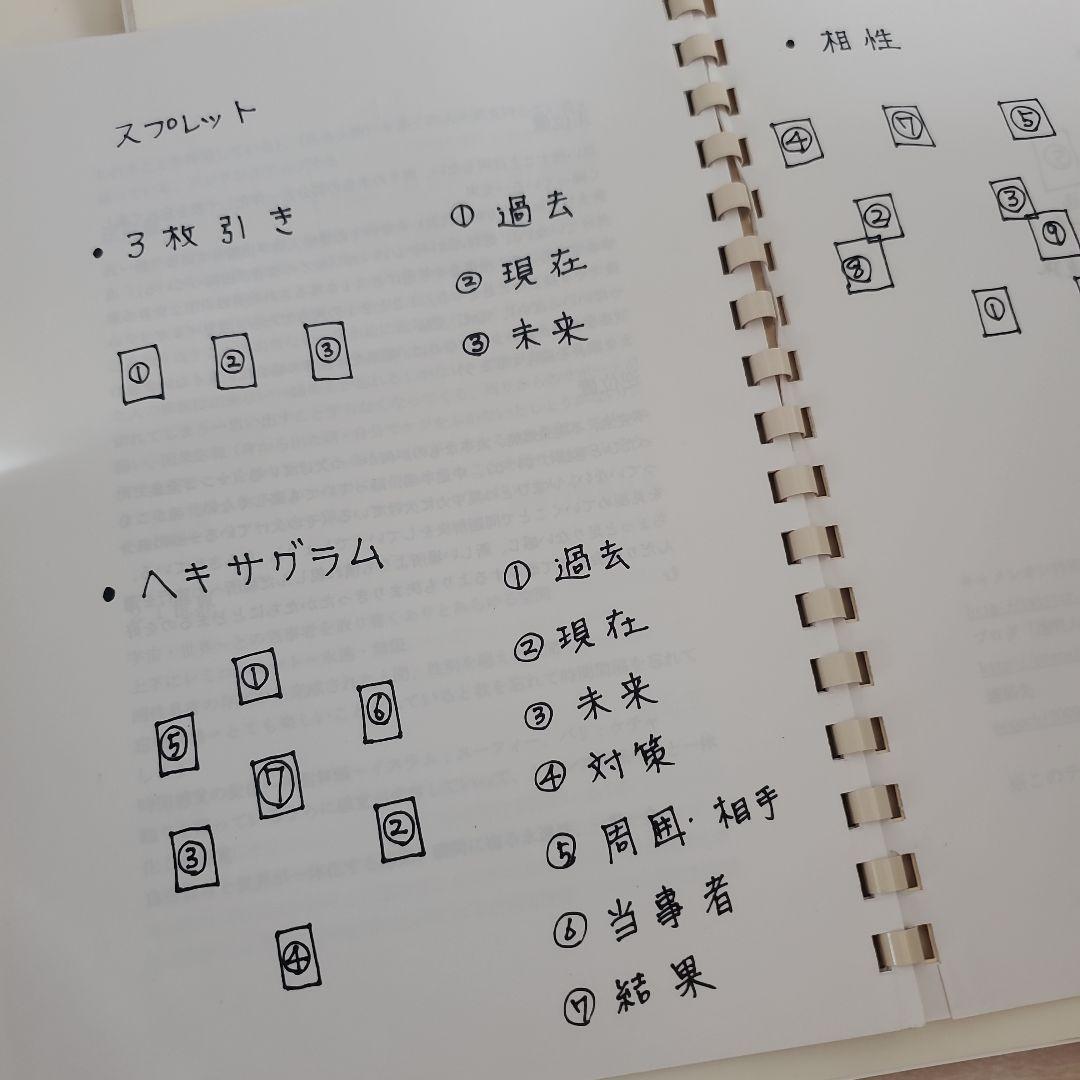 スプレット
・3枚引き
① 過去
② 現在
③ 未来
① ② ③
・ヘキサグラム
① 過去
② 現在
③ 未来
④ 対策
⑤ 周囲・相手
⑥ 当事者
⑦ 結果
①
⑥
⑤
⑦
②
③
④
・相性
④ ⑦ ⑤
② ③
⑧ ⑨
①